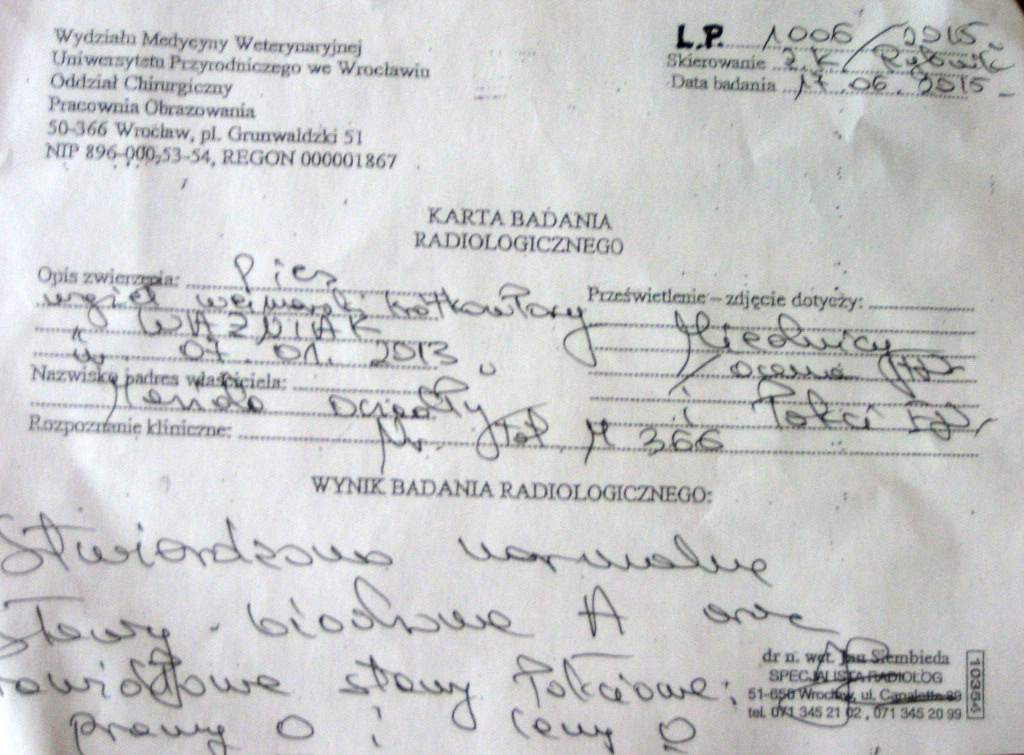 Wydziału Medycyny Weterynaryjnej
Uniwersytetu Przyrodniczego we Wrocławiu
Oddział Chirurgiczny
Pracownia Obrazowania
50-366 Wrocław, pl. Grunwaldzki 51
NIP 896-000-53-54, REGON 000001867
L.P. 1006/2015
Skierowanie
Data badania 17.06.2015
KARTA BADANIA
RADIOLOGICZNEGO
Opis zwierzęcia: Pies
wyżeł weimarski krótkowłosy
WAŻNIAK
ur. 07.01.2013
Prześwietlenie – zdjęcie dotyczy:
Miednicy
/ocena
i łokci
Nazwisko i adres właściciela:
Rozpoznanie kliniczne: Nr. 366
WYNIK BADANIA RADIOLOGICZNEGO:
Stwierdzono normalne
stawy biodrowe A oraz
prawidłowe stawy łokciowe:
prawy 0 i lewy 0
dr n. wet. Jan Siembieda
SPECJALISTA RADIOLOG
51-650 Wrocław, ul. Canaletta 89
tel. 071 345 21 02, 071 345 20 99
10354